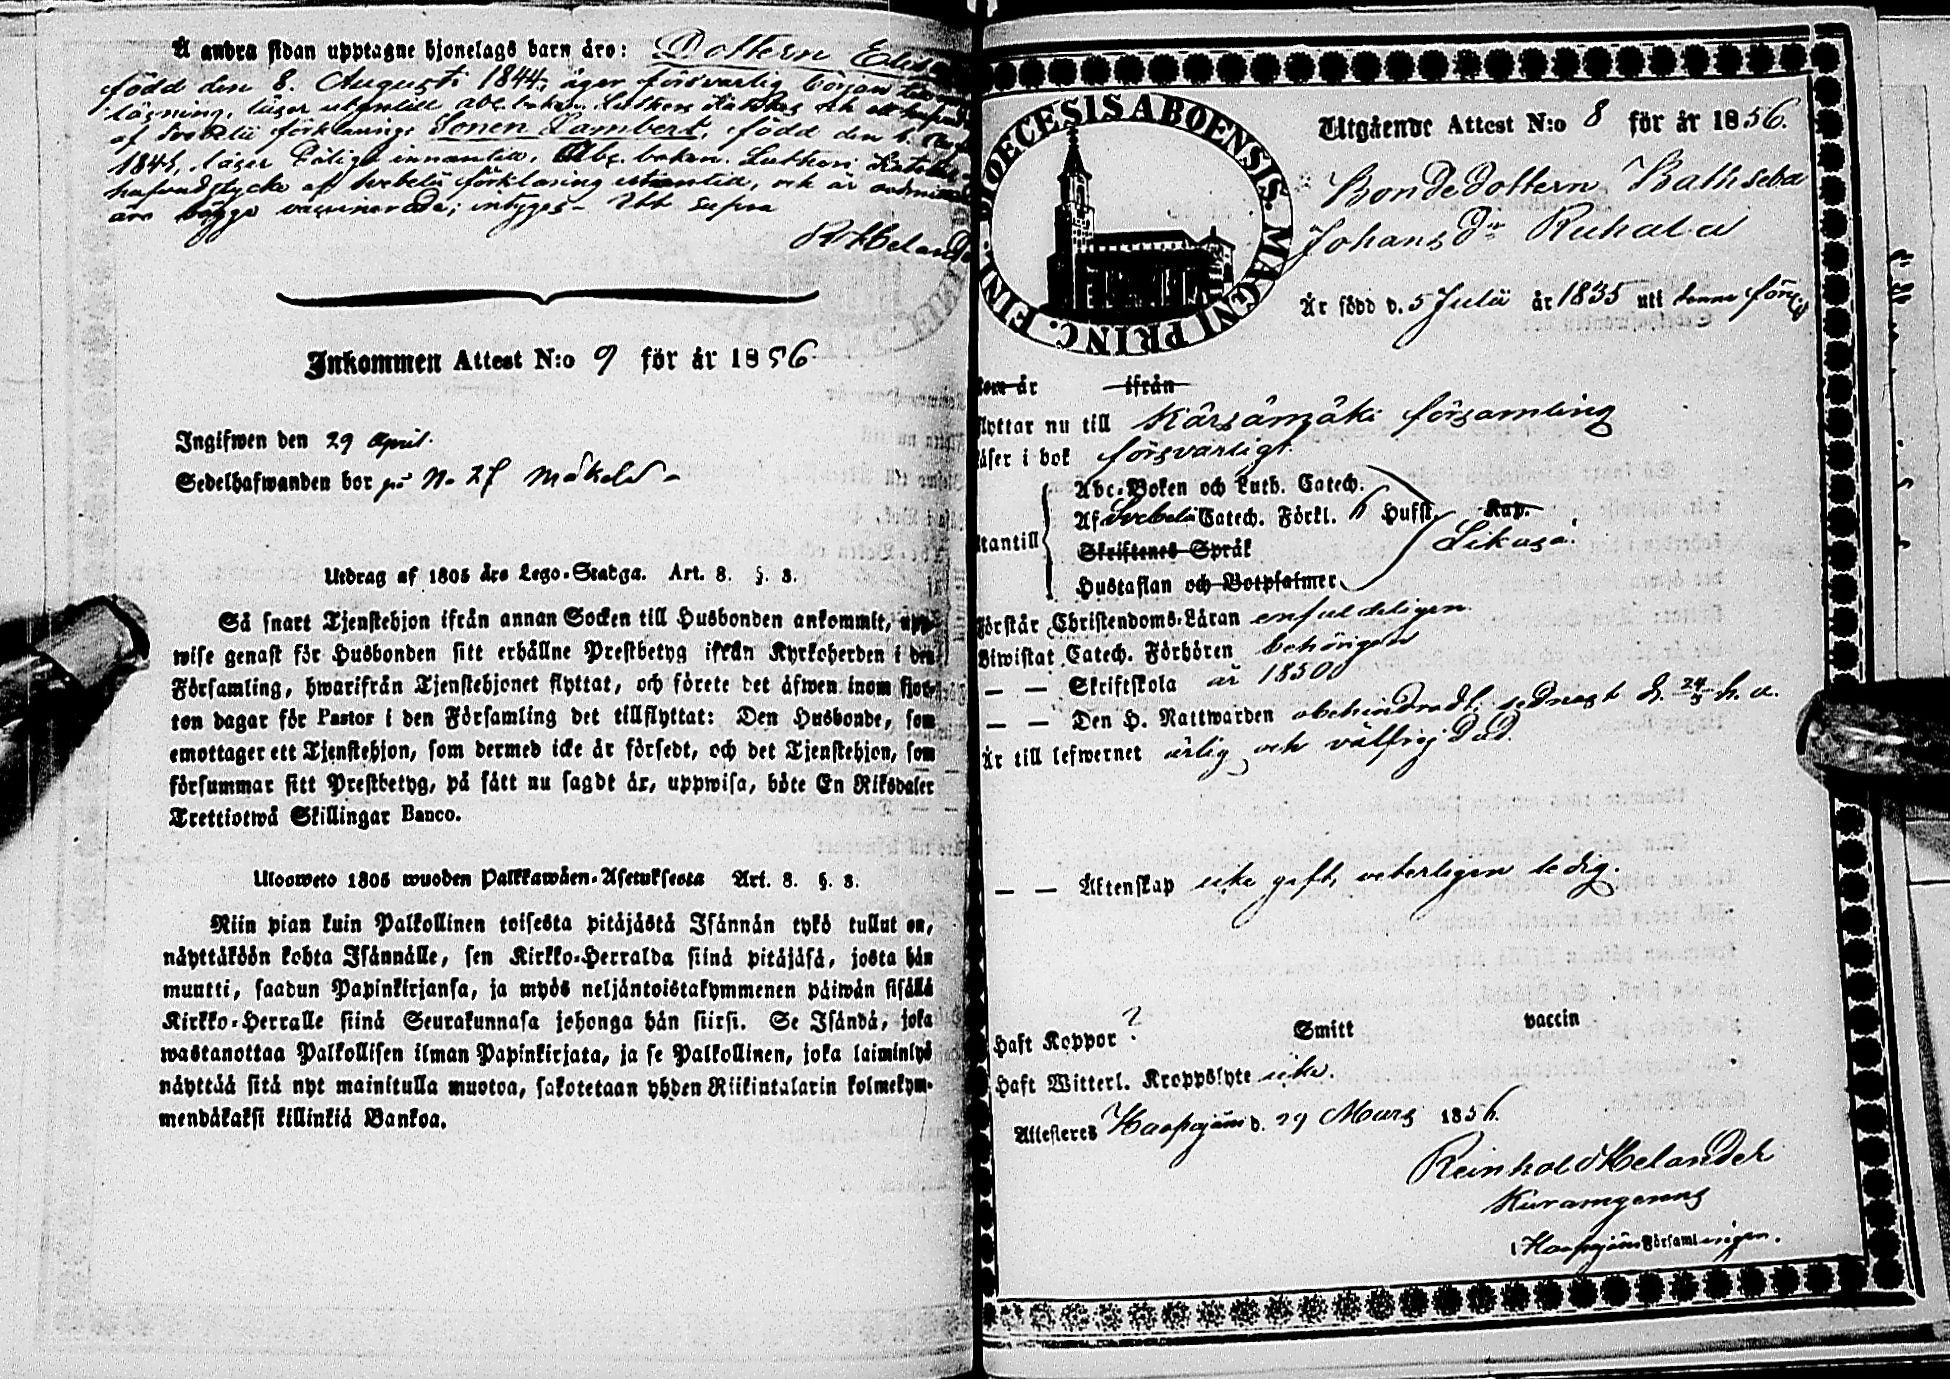 Å andra sidan upptagne hjonelags barn äro: Dottern
född den 8. Augusti 1844, äger försvarlig början
läsning, läser utantill abc boken Lutheri
af Svebelii förklaring; Sonen Lambert, född den
läser innantill, Abc. boken. Lutheri
hufvudstycke af Svebelii förklaring utantill, och är
äro bägge vaccinerade; intygas. Utt supra
R Heland
Inkommen Attest N:o 9 för år 1856
Ingifwen den 29 April.
Sedelhafwanden bor på N. 27 Mäkelä
Utdrag af 1805 års Lego-Stadga. Art. 8. §. 8.
Så snart Tjenstehjon ifrån annan Socken till Husbonden ankommit, upp-
wise genast för Husbonden sitt erhållne Prestbetyg ifrån Kyrkoherden i den
Församling, hwarifrån Tjenstehjonet flyttat, och förete det äfwen inom fjor-
ton dagar för Pastor i den Församling det tillflyttat: Den Husbonde, som
emottager ett Tjenstehjon, som dermed icke är försedt, och det Tjenstehjon, som
försummar sitt Prestbetyg, på sätt nu sagdt är, uppwisa, böte En Riksdaler
Trettiotwå Skillingar Banco.
Ulosweto 1805 wuoden Palkkawäen-Asetuksesta Art. 8. §. 8.
Niin pian kuin Palkollinen toisesta pitäjästä Isännän tykö tullut on,
näyttäköön kohta Isännälle, sen Kirkko-Herralda siinä pitäjäsä, josta hän
muutti, saadun Papinkirjansa, ja myös neljäntoistakymmenen päiwän sisällä
Kirkko-Herralle siinä Seurakunnasa johonga hän siirsi. Se Isändä, joka
wastanottaa Palkollisen ilman Papinkirjata, ja se Palkollinen, joka laiminlyö
näyttää sitä nyt mainitulla muotoa, sakotetaan yhden Riikintalarin kolmekym-
mendäkaksi killinkiä Bankoa.
DIOECESIS ABOENSIS. MAGNI PRINC. FINL.
Utgående Attest N:o 8 för år 1856.
Bondedottern Bathseba
Johans Dr Ruhala
Är född d. 5 Julii år 1835 uti denna förs.
Som år ifrån
flyttar nu till Kärsämäki församling
läser i bok försvarligt.
Abc-Boken och Luth. Catech.
Af Svebelii Catech. Förkl. 6 Hufst. Kap.
utantill Skriftenes Språk Likaså.
Hustaflan och Botpsalmer
Förstår Christendoms-Läran enfaldeligen
Biwistat Catech. Förhören behörigen
— — Skriftskola år 1850
— — Den H. Nattwarden obehindradt, sednast d. 24/3 h. a.
Är till lefwernet ärlig och välfrejdad.
— — Äktenskap icke gift, veterligen ledig.
Haft Koppor ? Smitt vaccin
Haft Witterl. Kroppslyte icke.
Attesteres Haapajärvi d. 29 Mars 1856.
Reinhold Helander
i Haapajärvi Församlingen.